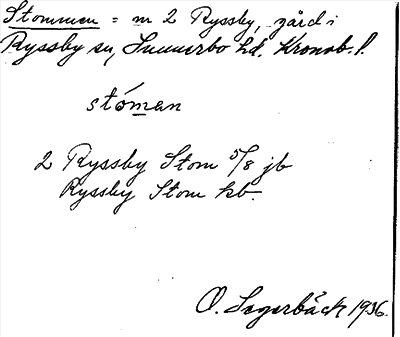 Stommen = nr 2 Ryssby, gård i
Ryssby sn, Sunnerbo hd. Kronob. l.
stóman
2 Ryssby Stom 5/8 jb
Ryssby Stom kb.
O. Segerbäck 1936.